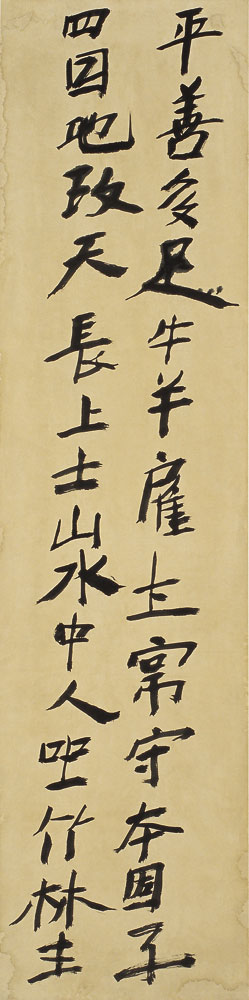 平善多足牛羊雇士常守本因
四因地政天長上士山水中人坐竹林主